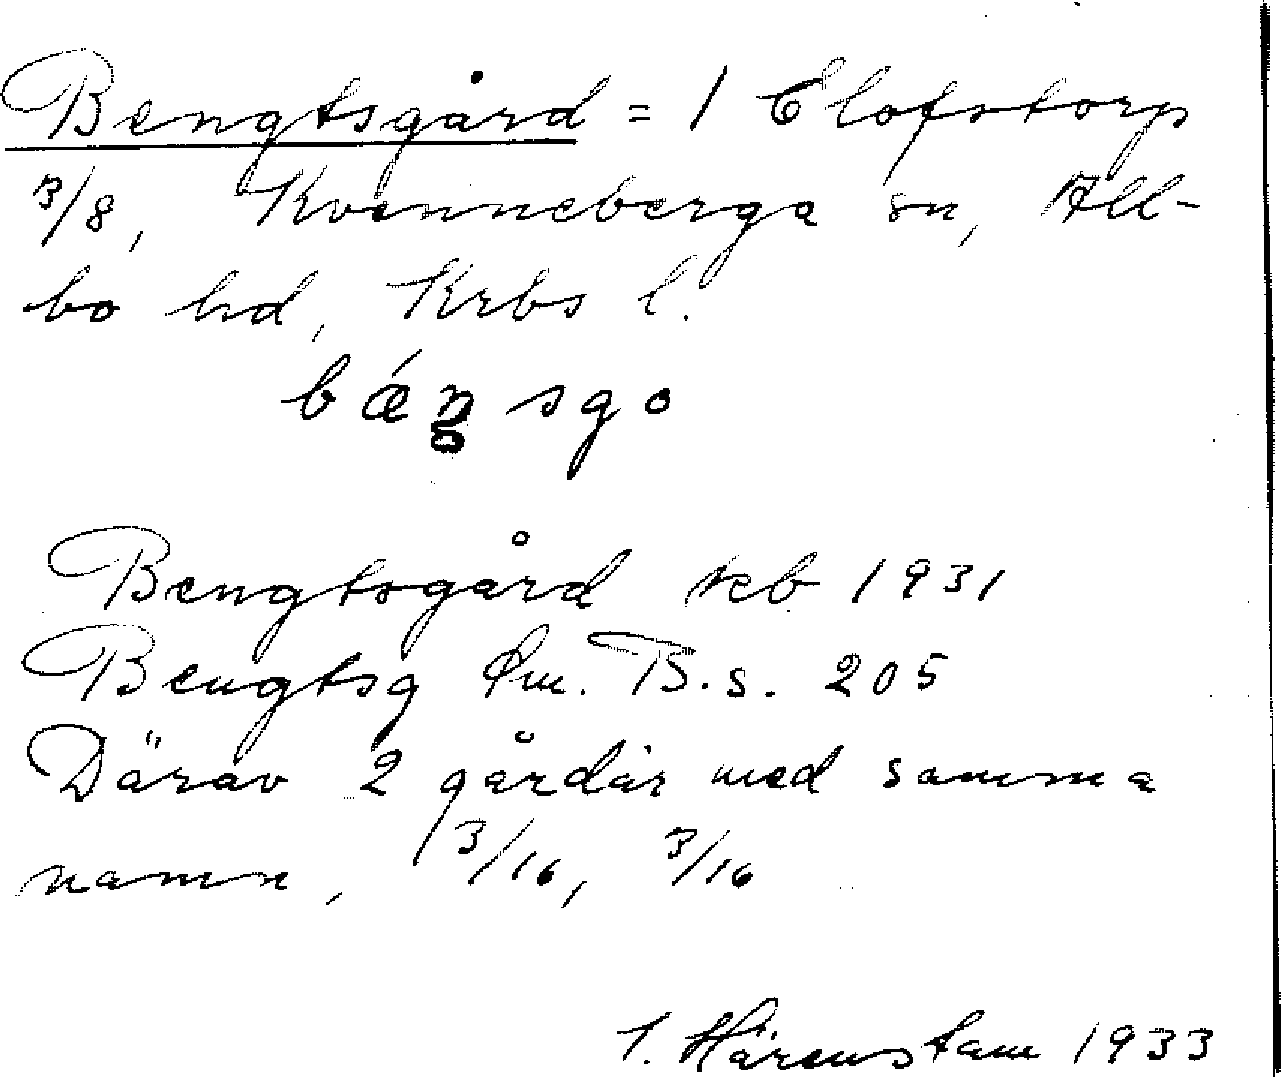 Bengtsgård = 1 Elofstorp
3/8, Kvenneberga sn, All-
bo hd, Krbs l.
bǽn̥sgo
Bengtsgård 1931
Bengtsg B.s. 205
Därav 2 gårdar med samma
namn, 3/16, 3/16
Härenstam 1933